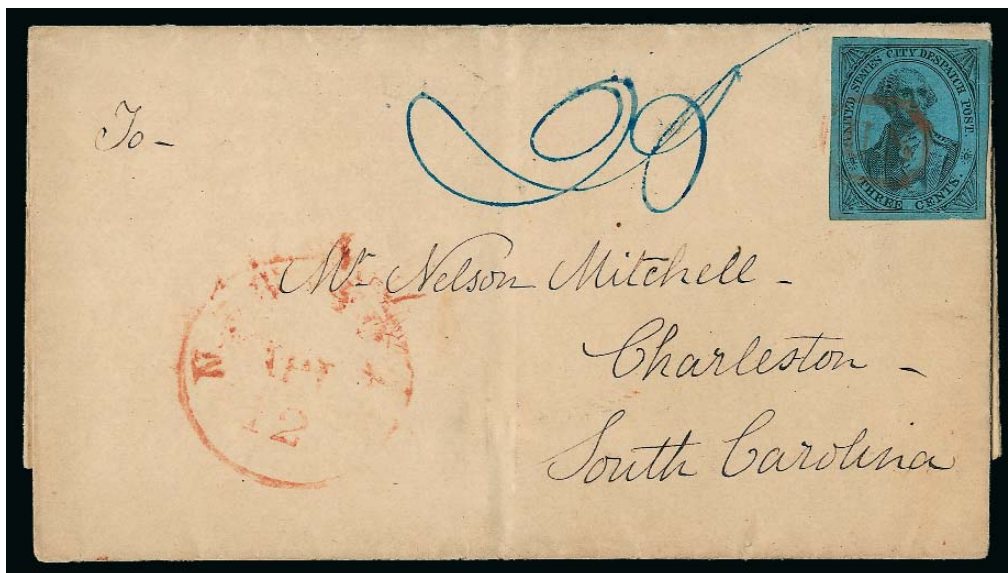 To -
25
UNITED STATES CITY DESPATCH POST.
THREE CENTS.
Mr Nelson Mitchell -
Charleston -
South Carolina
12